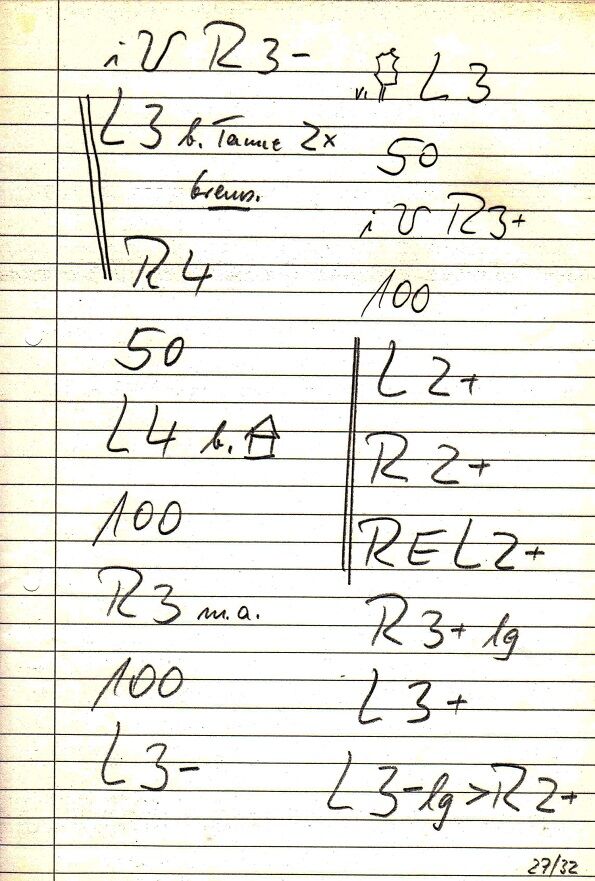 i V R3-
L3 b. Tanne 2x
brems.
R4
50
L4 b.
100
R3 m.a.
100
L3-
v. L3
50
i V R3+
100
L2+
R2+
REL2+
R3+ lg
L3+
L3- lg > R2+
27/32